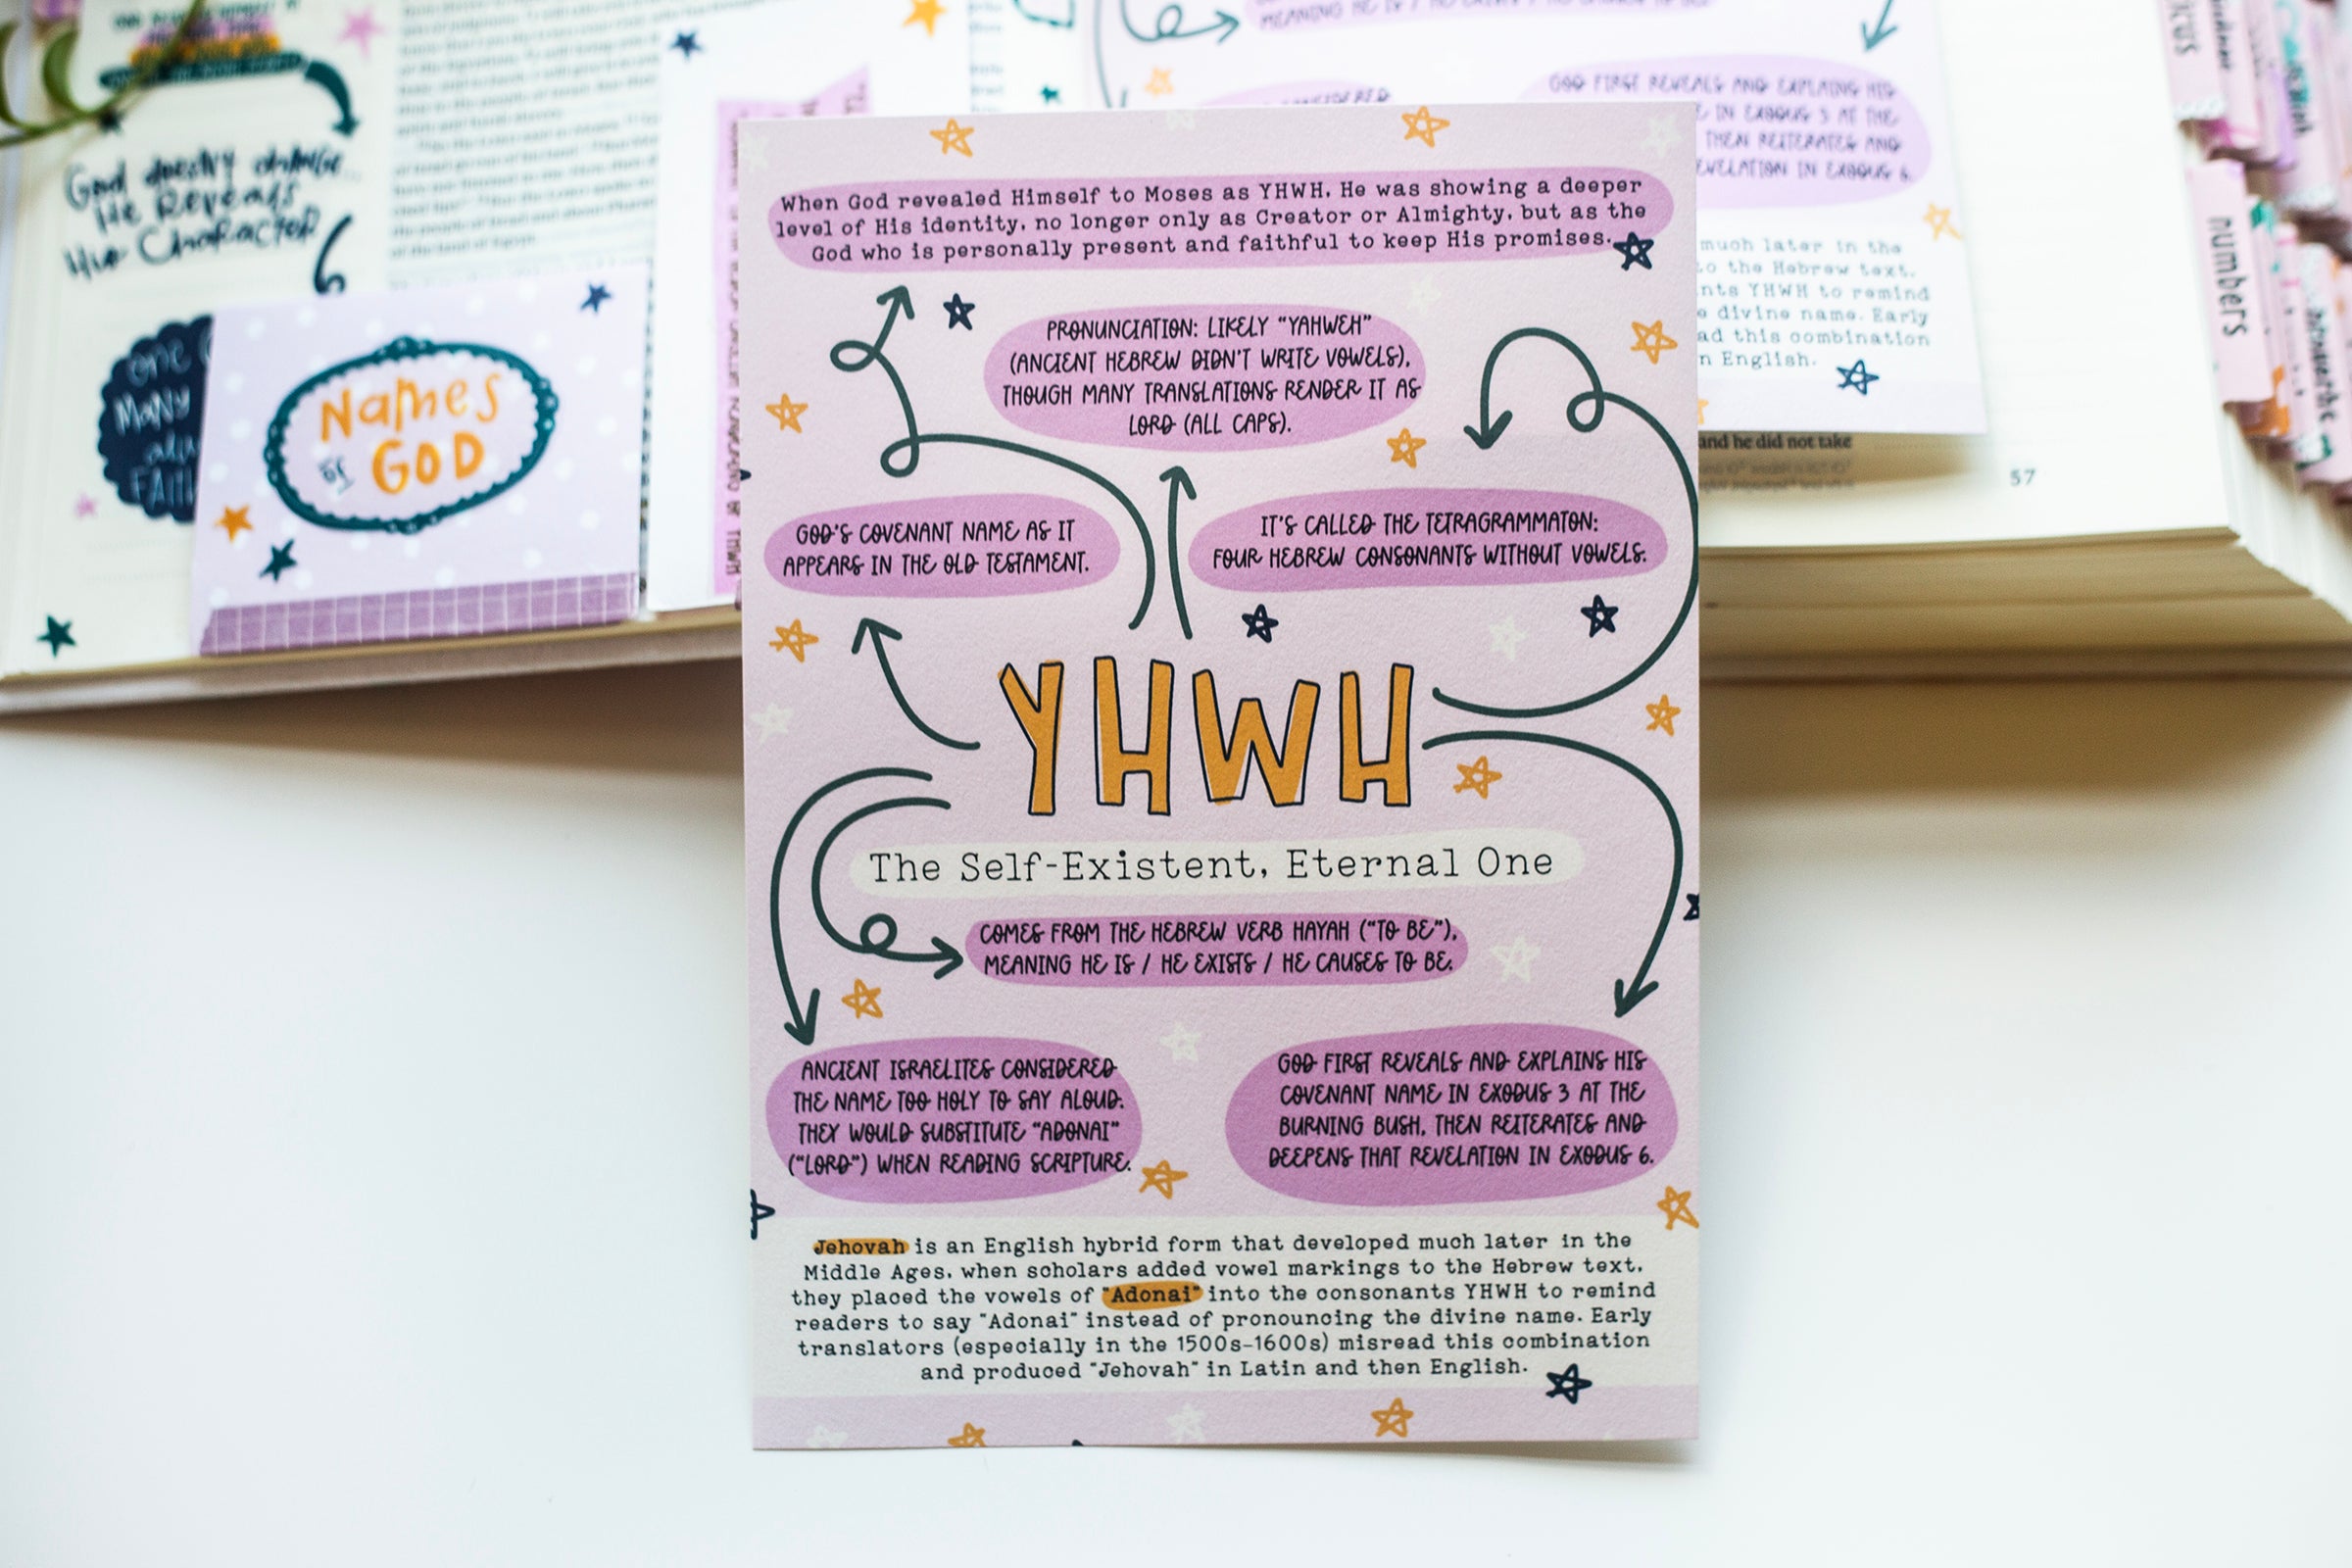 God doesn't change...
He Reveals
His Character
one
Many
FAI
Names
of
GOD
MEANING HE IS / HE
GOD FIRST REVEALS AND EXPLAINS HIS
IN EXODUS 3 AT THE
THEN REITERATES AND
REVELATION IN EXODUS 6.
much later in the
to the Hebrew text.
YHWH to remind
divine name. Early
this combination
English.
and he did not take
57
numbers
When God revealed Himself to Moses as YHWH, He was showing a deeper
level of His identity, no longer only as Creator or Almighty, but as the
God who is personally present and faithful to keep His promises.
PRONUNCIATION: LIKELY “YAHWEH”
(ANCIENT HEBREW DIDN'T WRITE VOWELS),
THOUGH MANY TRANSLATIONS RENDER IT AS
LORD (ALL CAPS).
GOD'S COVENANT NAME AS IT
APPEARS IN THE OLD TESTAMENT.
IT'S CALLED THE TETRAGRAMMATON:
FOUR HEBREW CONSONANTS WITHOUT VOWELS.
YHWH
The Self-Existent, Eternal One
COMES FROM THE HEBREW VERB HAYAH (“TO BE”),
MEANING HE IS / HE EXISTS / HE CAUSES TO BE.
ANCIENT ISRAELITES CONSIDERED
THE NAME TOO HOLY TO SAY ALOUD.
THEY WOULD SUBSTITUTE “ADONAI”
(“LORD”) WHEN READING SCRIPTURE.
GOD FIRST REVEALS AND EXPLAINS HIS
COVENANT NAME IN EXODUS 3 AT THE
BURNING BUSH, THEN REITERATES AND
DEEPENS THAT REVELATION IN EXODUS 6.
Jehovah is an English hybrid form that developed much later in the
Middle Ages, when scholars added vowel markings to the Hebrew text,
they placed the vowels of "Adonai" into the consonants YHWH to remind
readers to say "Adonai" instead of pronouncing the divine name. Early
translators (especially in the 1500s–1600s) misread this combination
and produced "Jehovah" in Latin and then English.